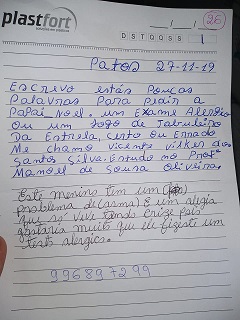 plastfort
26
D S T Q Q S S
Patos 27-11-19
Escrevo estás poucas
Palavras Para pidir a
Papai noel. um Exame Alergio
Ou um Jogo de Tabuleiro
Da Estrela, Certo ou Errado
Me chamo Vicente vilker dos
Santos Silva. Estudo no Profº
Manoel de Sousa Oliveira.
Este menino tem um
problema de (asma) E um alegia
que so veve tendo crize pois
gostaria muito que ele fizesti um
test alergico.
996897299